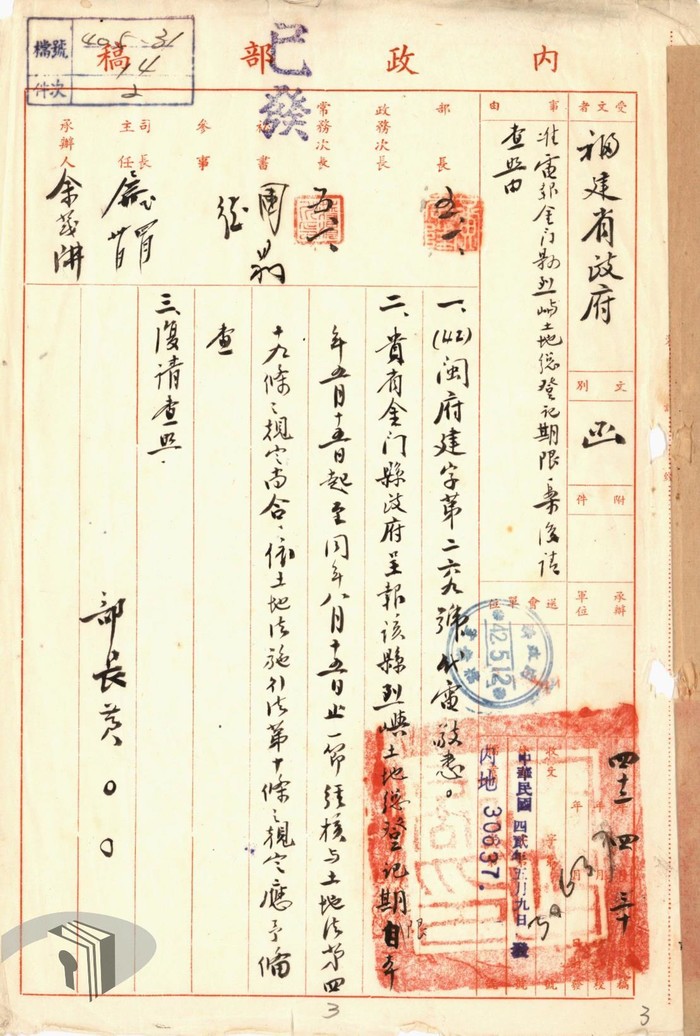 內政部稿
已發
檔號 405-31
14
件次 2
受文者
福建省政府
文別
函
附件
承辦單位
事由
准電報金门縣烈嶼土地總登記期限一案復請
查照由
送會單位
部長
五、一、
政務次長
常務次長
五、一、
秘書
參事
司長
主任
承辦人
一、(42)闽府建字第二六九號代電敬悉。
二、貴省金门縣政府呈報該縣烈嶼土地總登記期限自本
年五月十五日起至同年八月十五日止一節經核与土地法第四
十九條之規定尚合、依土地法施行法第十條之規定應予備
查
三、復请查照、
部長黃○○
42.5.12
中華民國四貳年五月九日發
內地30637.
收文
字
號
年
四二 四 三十
3
3